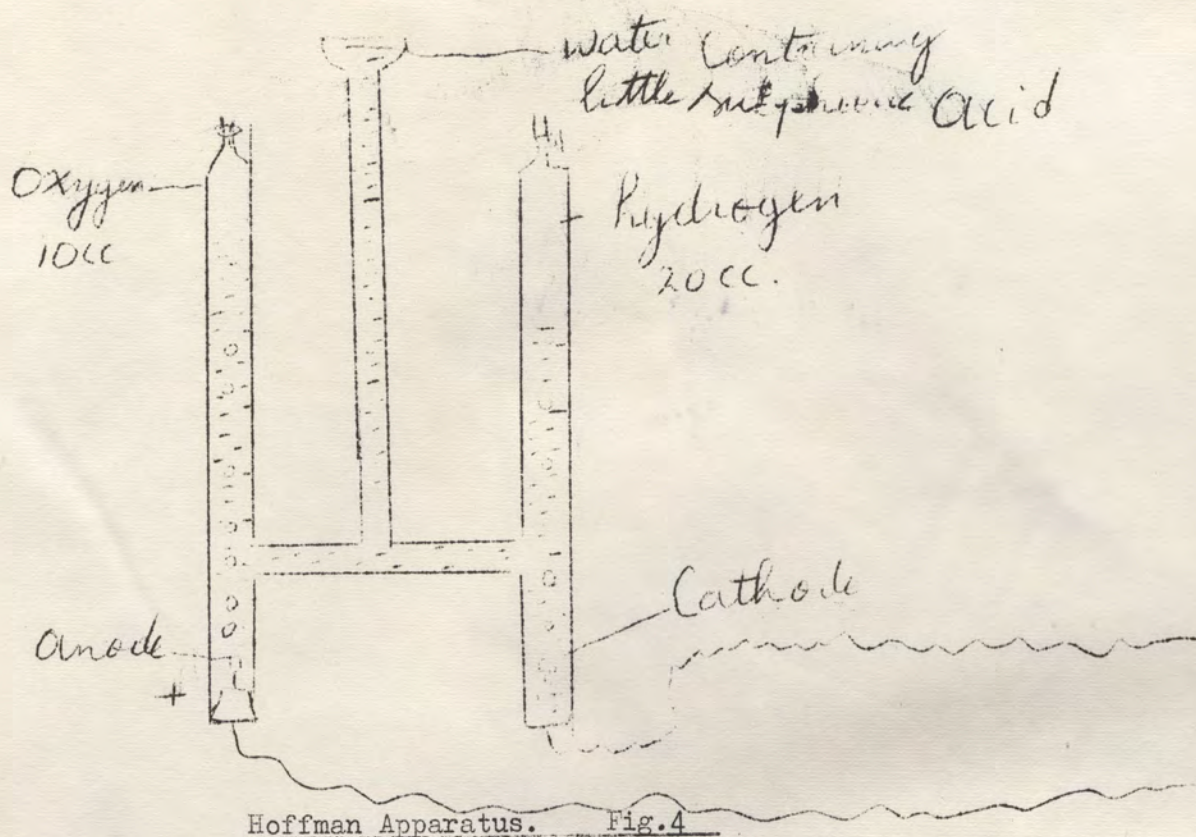 Water Containing
little sulphuric acid
Oxygen
10cc
hydrogen
20cc.
Cathode
anode
+
Hoffman Apparatus. Fig.4